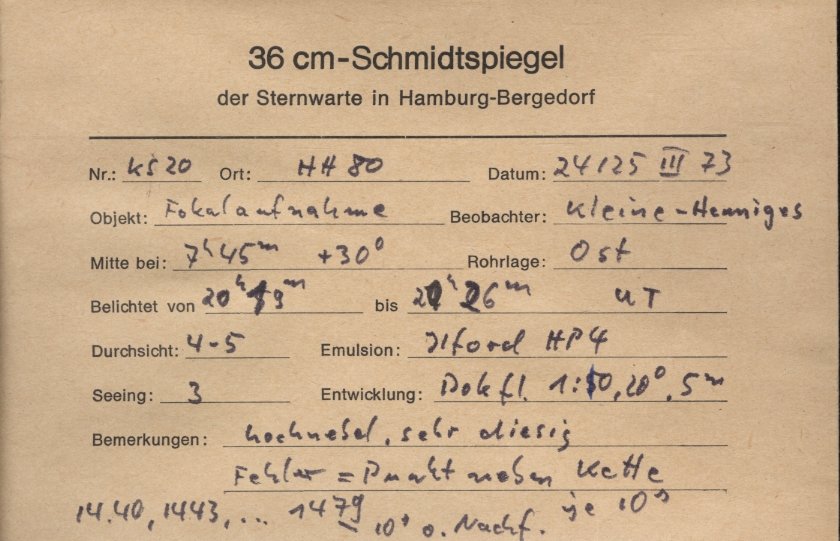 36 cm-Schmidtspiegel
der Sternwarte in Hamburg-Bergedorf
Nr.: KS 20 Ort: HH 80 Datum: 24/25 III 73
Objekt: Fokalaufnahme Beobachter: Kleine-Henniges
Mitte bei: 7h 45m +30° Rohrlage: Ost
Belichtet von 20h 19m bis 26m UT
Durchsicht: 4-5 Emulsion: Ilford HP4
Seeing: 3 Entwicklung: Dokfl. 1:10, 20°, 5m
Bemerkungen: hochnebel, sehr diesig
Fehler = Punkt neben Kette
14.40, 1443, ... 1479 je 10s
10s o. Nachf.